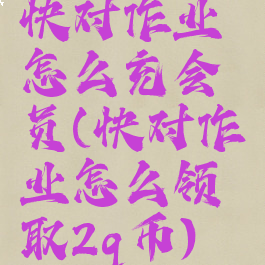 快对作业
怎么充会
员(快对作
业怎么领
取2q币)